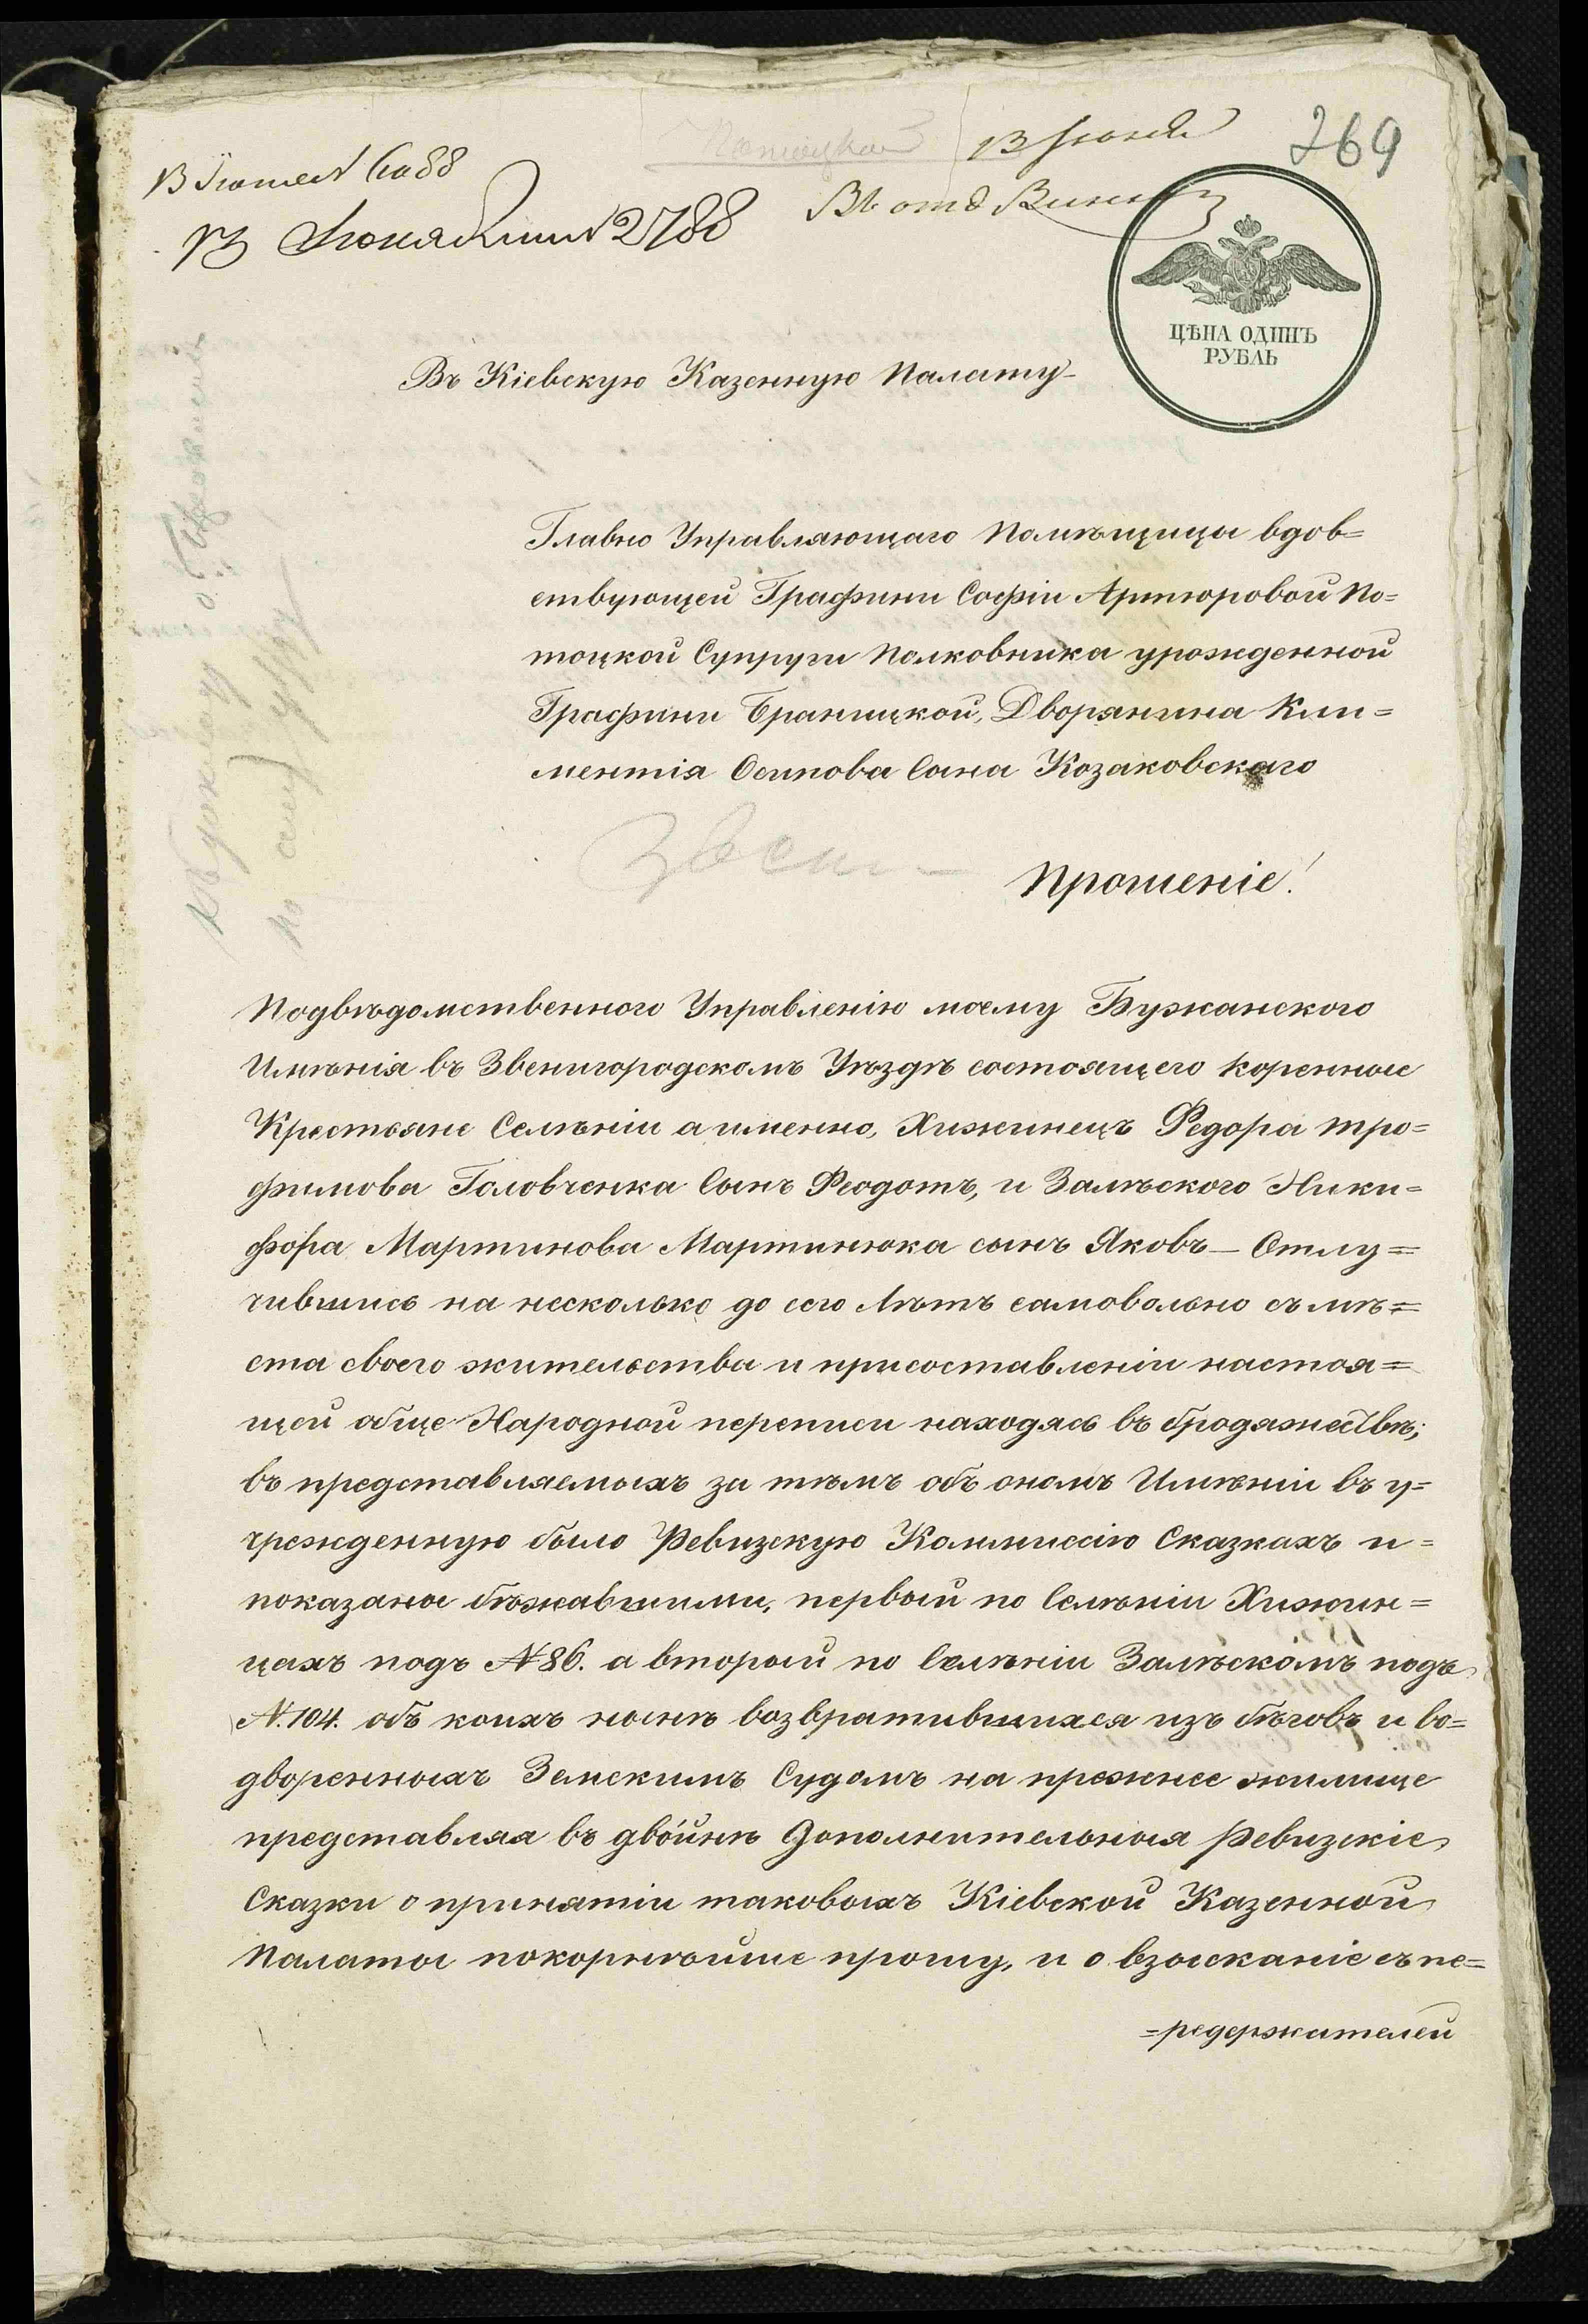 269
13 Іюня
2788
Въ отд
ЦѢНА ОДИНЪ
РУБЛЬ
Въ Кіевскую Казенную Палату
Главно Управляющаго Помѣщицы вдов=
ствующей Графини Софіи Артюровой По=
тоцкой Супруги Полковника урожденной
Графини Браницкой, Дворянина Кли=
ментія Осипова Сына Козаковскаго
Звени
Прошеніе!
Подвѣдомственного Управленію моему Бужанского
Имѣнія въ Звенигородскомъ Уѣздѣ состоящего коренные
Крестьяне Селѣніи а именно, Хижинецъ Федора Тро=
фимова Головченка Сынъ Феодотъ, и Залѣского Ники=
фора Мартинова Мартинюка сынъ Яковъ — Отлу=
чившись на несколько до сего Лѣтъ самовольно съ мѣ=
ста своего жительства и присоставленіи настоя=
щей обще Народной переписи находясь въ бродяжествѣ;
въ представляемыхъ за тѣмъ объ ономъ Имѣніи въ у=
чрежденную было Ревизскую Коммиссію Сказкахъ и=
показаны бѣжавшими, первый по Селѣніи Хижин=
цахъ подъ №86. а вторый по Селѣніи Залѣскомъ подъ
№.104. объ коихъ нынѣ возвратившихся изъ бѣговъ и во=
дворенныхъ Земскимъ Судомъ на прежнее жилище
представляя въ двойнѣ Дополнительныя Ревизскіе
Сказки о принятіи таковыхъ Кіевской Казенной
Палаты покорнѣйше прошу, и о взысканіе съ пе=
=редержителей